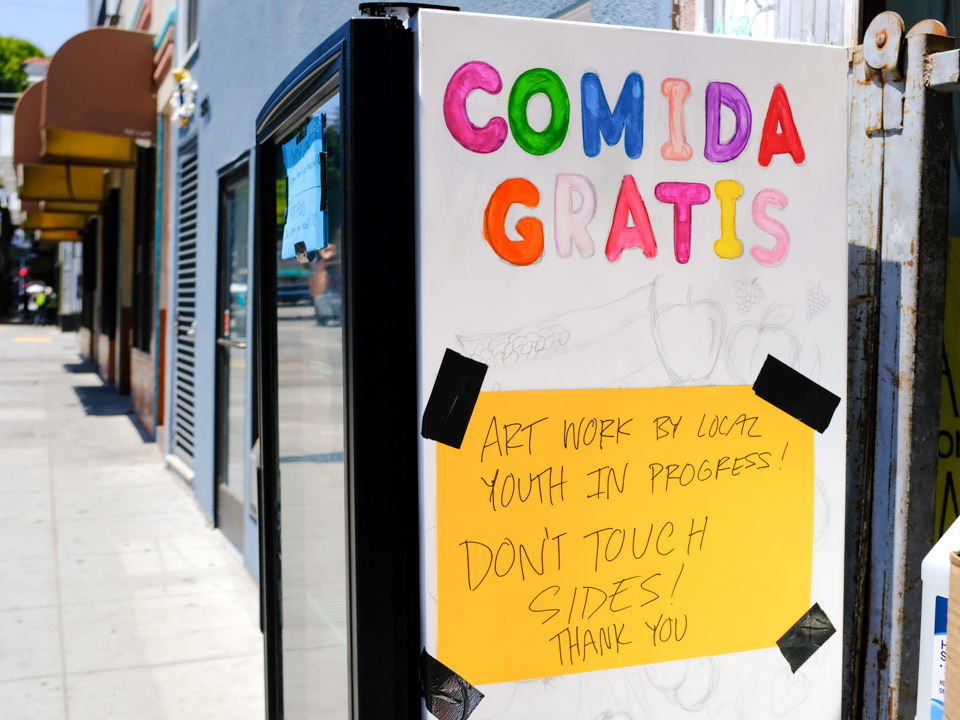 COMIDA
GRATIS
ART WORK BY LOCAL
YOUTH IN PROGRESS!
DON'T TOUCH
SIDES!
THANK YOU